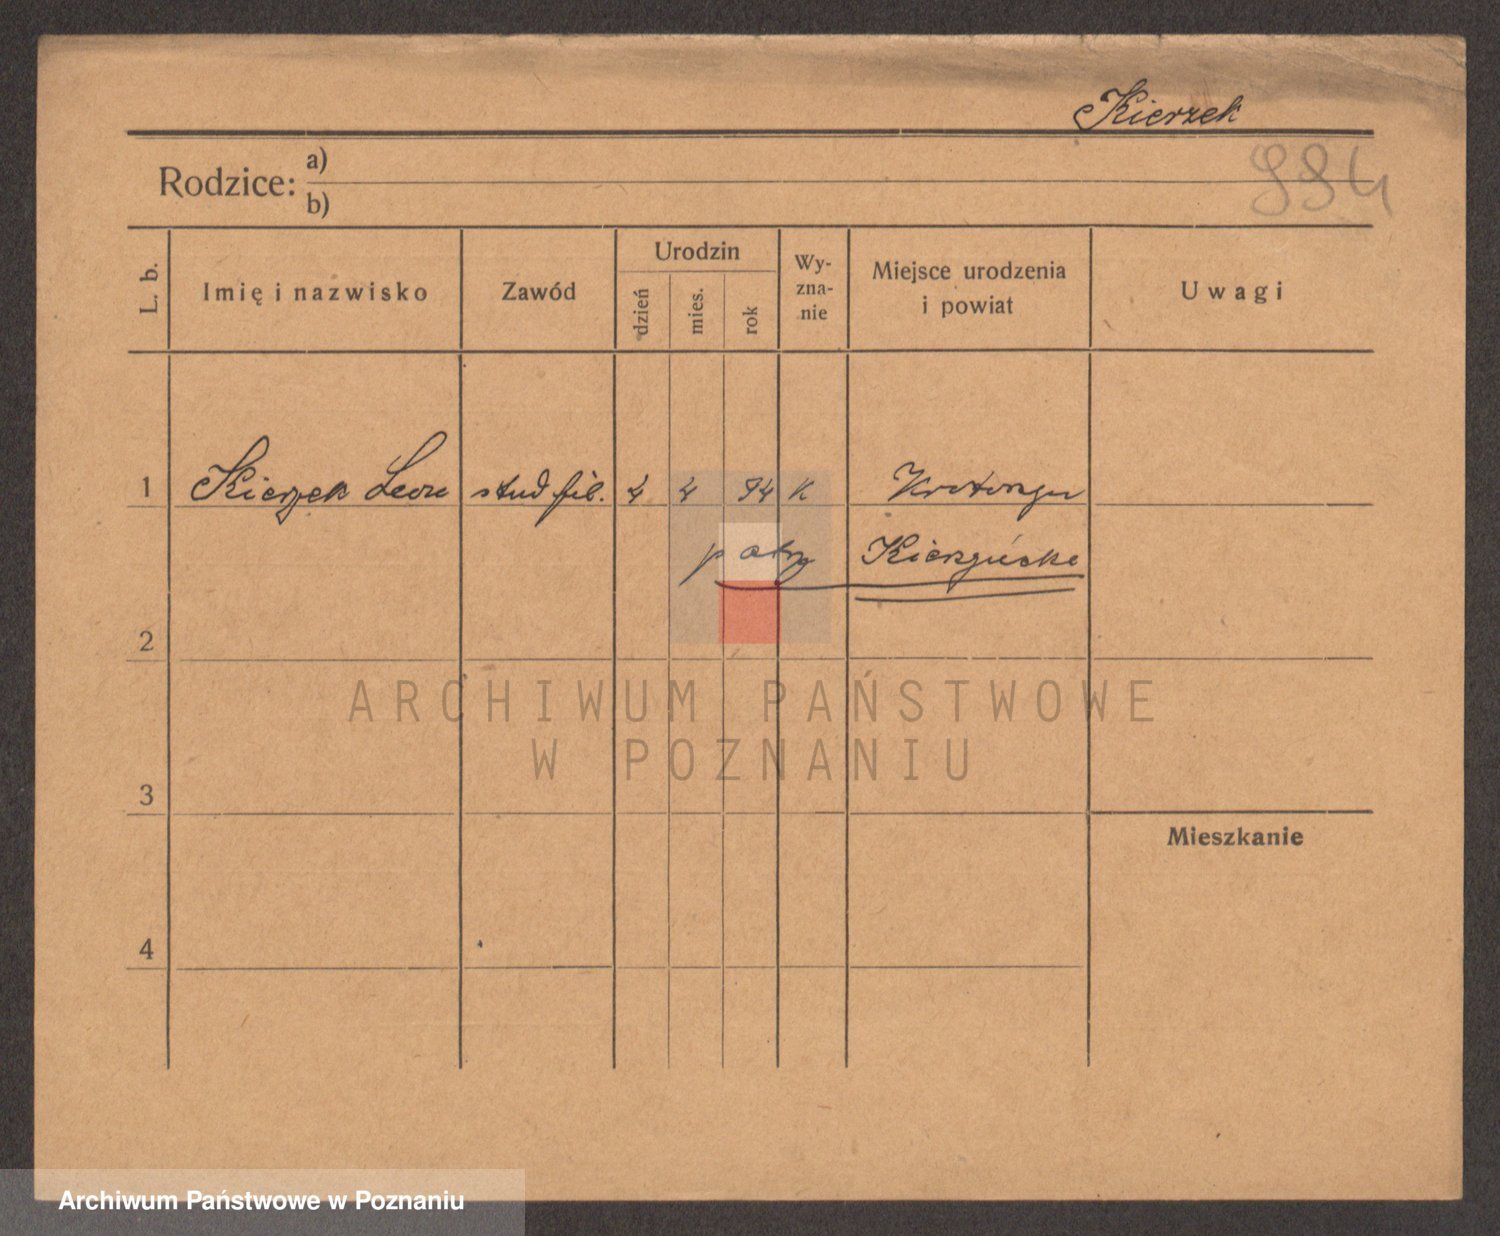 Kierzek
Rodzice: a)
b)
994
L. b.
Imię i nazwisko
Zawód
Urodzin
dzień
mies.
rok
Wy-
zna-
nie
Miejsce urodzenia
i powiat
Uwagi
1 Kierzek Leon stud fil. 4 4 94 K
patrz
2
3
4
Mieszkanie
ARCHIWUM PAŃSTWOWE
W POZNANIU
Archiwum Państwowe w Poznaniu